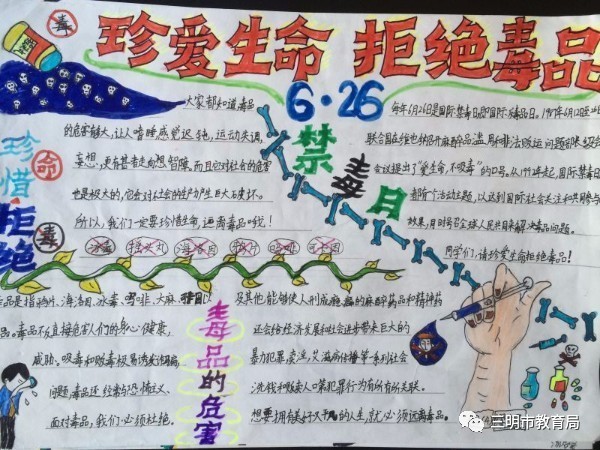 珍爱生命 拒绝毒品
毒
6·26
禁毒月
珍惜命
拒绝毒
大家都知道毒品
的危害
让人嗜睡感觉迟钝，运动失调，
妄想，更有甚者走向
智障。而且它对社会的危害
也是极大的，它会对社会的生产力产生巨大破坏。
所以，我们一定要珍惜生命，远离毒品哦！
冰毒 摇头丸 海洛因 鸦片
每年6月26日是国际禁毒日即国际反毒品日。1987年6月12日至26日
联合国在维也纳召开麻醉品滥用和非法贩运问题部长级会
会议提出了“爱生命，不吸毒”的口号。从1992年起，国际禁毒日
都有一个活动主题，以达到国际社会关注和共同参与
效果，月时号召全球人民共同来解决毒品问题。
同学们，请珍爱生命拒绝毒品！
毒品的危害
品是指鸦片、海洛因、冰毒、吗啡、大麻、
以及其他能够使人形成瘾癖的麻醉药品和精神药
品。毒品不仅直接危害人们的身心健康，
还会给经济发展和社会进步带来巨大的
威胁。吸毒和贩毒极易诱发
暴力犯罪，卖淫，艾滋病传播等一系列社会
问题，毒品还经常与恐怖主义、
洗钱和贩卖人口等犯罪行为有所有所关联。
面对毒品，我们必须杜绝。
想要拥有美好
的人生，就必须远离毒品。
三明市教育局